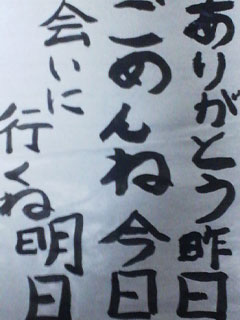 ありがとう昨日
ごめんね今日
会いに
行くね明日